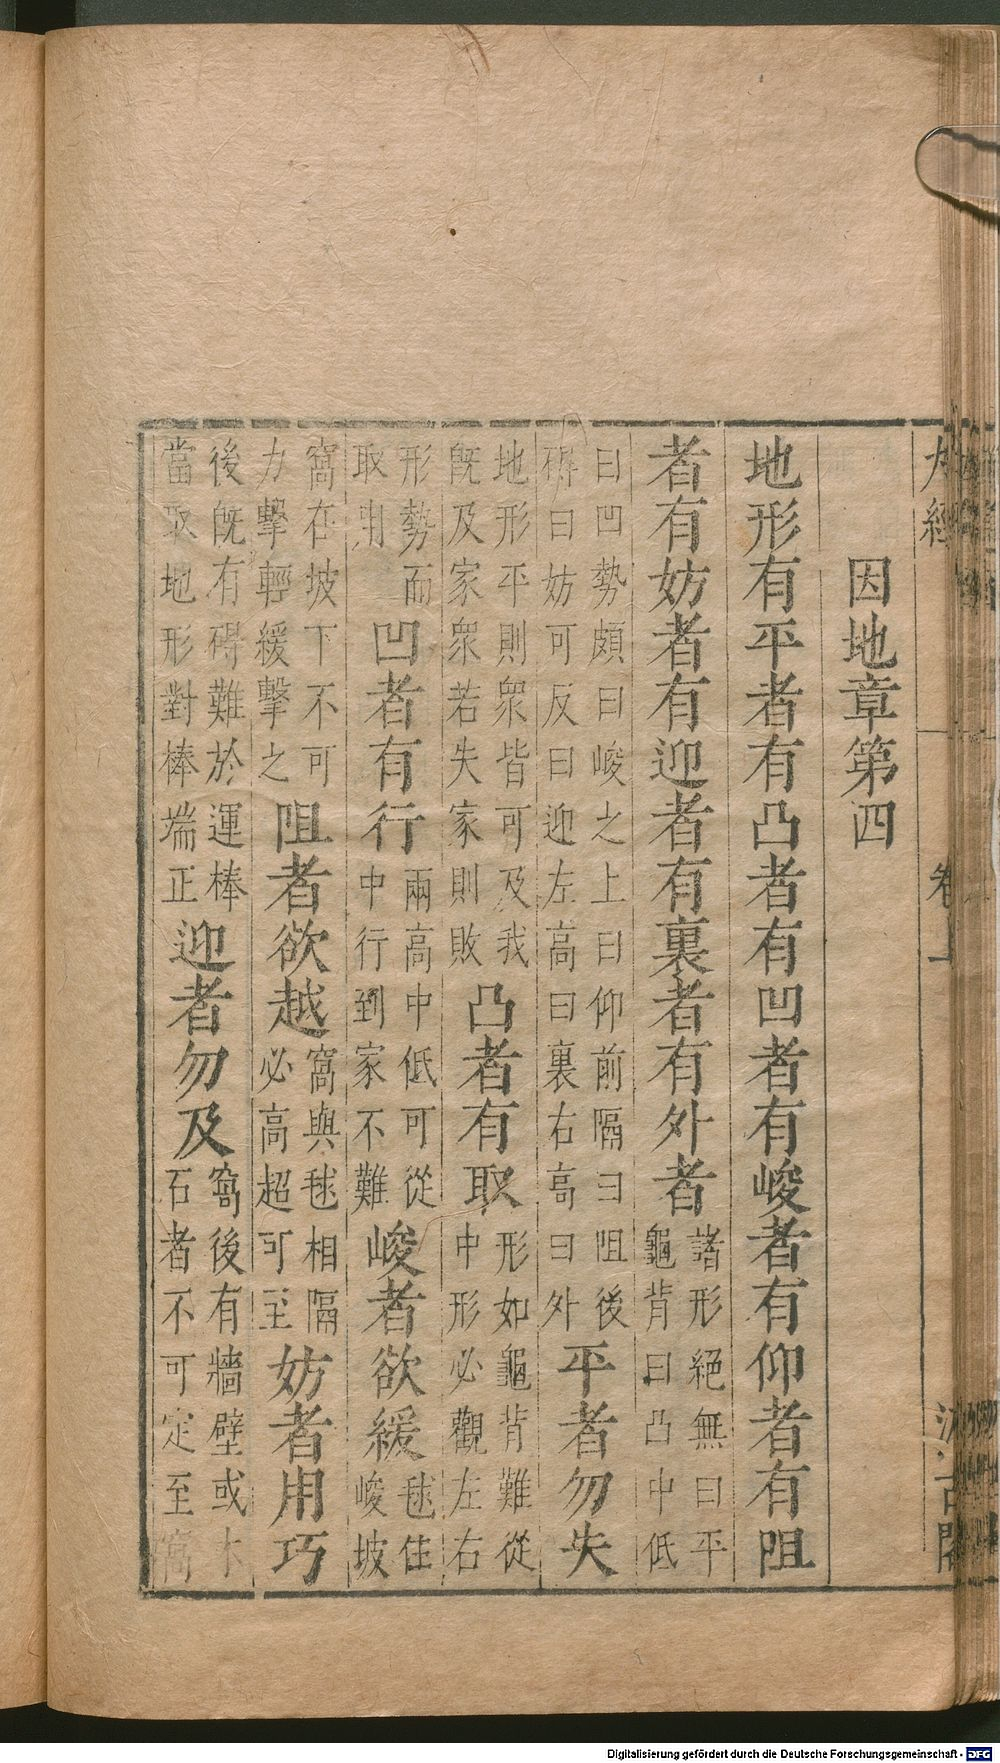 因地章第四
地形有平者有凸者有凹者有峻者有仰者有阻
者有妨者有迎者有裏者有外者
諸形絕無曰平
龜背曰凸中低
曰凹勢頗曰峻之上曰仰前隔曰阻後
碍曰妨可反曰迎左高曰裏右高曰外
平者勿失
地形平則衆皆可及我
旣及家衆若失家則敗
凸者有取
形如龜背難從
中形必觀左右
形勢而
取用
凹者有行
兩高中低可從
中行到家不難
峻者欲緩
毬住
峻坡
窩在坡下不可
力擊輕緩擊之
阻者欲越
窩與毬相隔
必高超可至
妨者用巧
後旣有碍難於運棒
當取地形對棒端正
迎者勿及
窩後有牆壁或木
石者不可定至窩
卷上
Digitalisierung gefördert durch die Deutsche Forschungsgemeinschaft - DFG